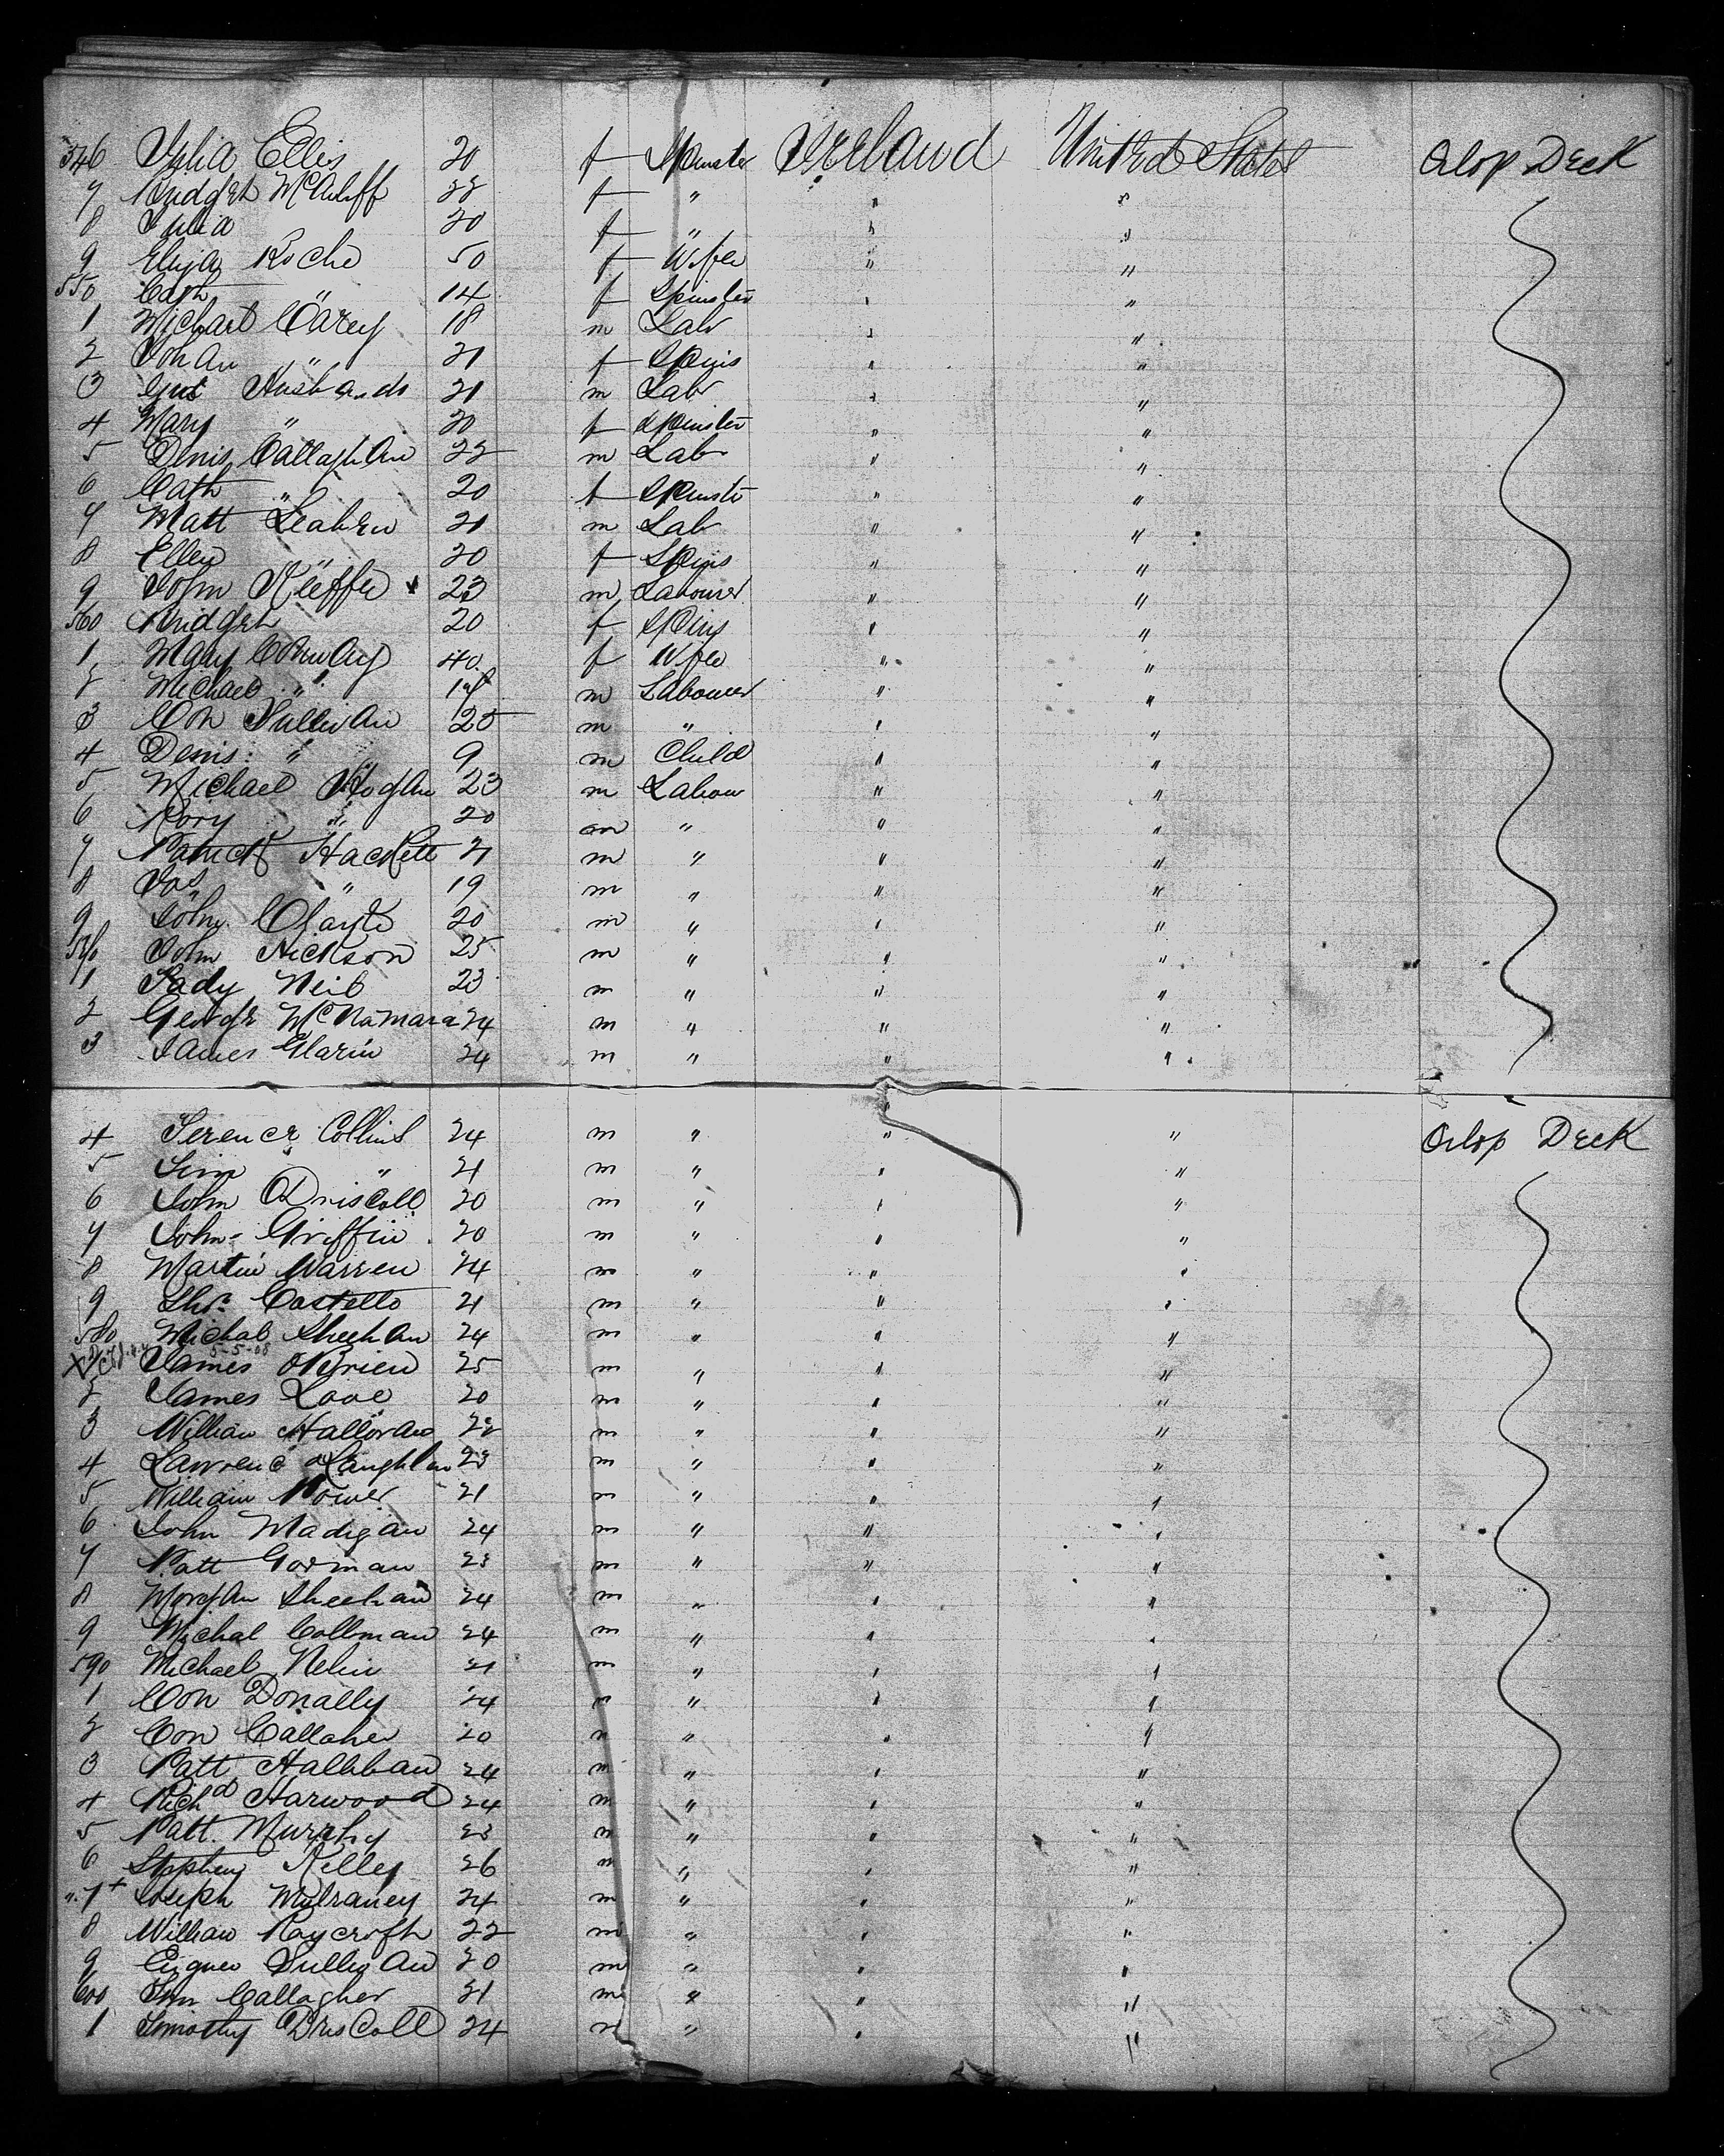 546 Julia Ellis 20 f Spinster Ireland United States Orlop Deck
7 Bridget McAuliff 22 f " " "
8 Julia 20 f " " "
9 Eliza Roche 50 f Wife " "
550 Cath " 14 f Spinster " "
1 Michael Carey 18 m Lab " "
2 Johan " 21 f Spins " "
3 Husbands 21 m Lab " "
4 Mary " 20 f Spinster " "
5 Denis Callaghan 22 m Lab " "
6 Cath " 20 f Spinste " "
7 Matt Leahen 21 m Lab " "
8 Ellen " 20 f Spins " "
9 John Keeffe 23 m Labourer " "
560 Bridget 20 f Spins " "
1 Mary Conway 40 f Wife " "
2 Michael " m Labourer " "
3 Con Sullivan 25 m " " "
4 Denis " 9 m Child " "
5 Michael Hogan 23 m Labour " "
6 Rory " 20 m " " "
7 Patrick Hackett 21 m " " "
8 Jas " 19 m " " "
9 John 20 m " " "
570 John Hickson 25 m " " "
1 Pady Neil 23 m " " "
2 George McNamara 24 m " " "
3 James 24 m " " "
4 Terence Collins 24 m " " " Orlop Deck
5 Tim " 21 m " " "
6 John O Driscoll 20 m " " "
7 John Griffin 20 m " " "
8 Martin Warren 24 m " " "
9 Thos Costello 21 m " " "
580 Michal Sheehan 24 m " " "
5-5-08
X James OBrien 25 m " " "
2 James Love 20 m " " "
3 William Halloran 22 m " " "
4 Lawrence Laughlin 23 m " " "
5 William Power 21 m " " "
6 John Madigan 24 m " " "
7 Patt Gorman 23 m " " "
8 Morgan Sheehan 24 m " " "
9 Michal Collman 24 m " " "
590 Michael 21 m " " "
1 Con Donally 24 m " " "
2 Con Callaher 20 m " " "
3 Patt Hallihan 24 m " " "
4 Richd Harwood 24 m " " "
5 Patt. Murphy 23 m " " "
6 Stephen Kelley 26 m " " "
7 + Joseph Mulraney 24 m " " "
8 William Roycroft 22 m " " "
9 Eugnee Sullivan 20 m " " "
600 Tim Callagher 21 m " " "
1 Timothy Driscoll 24 m " " "